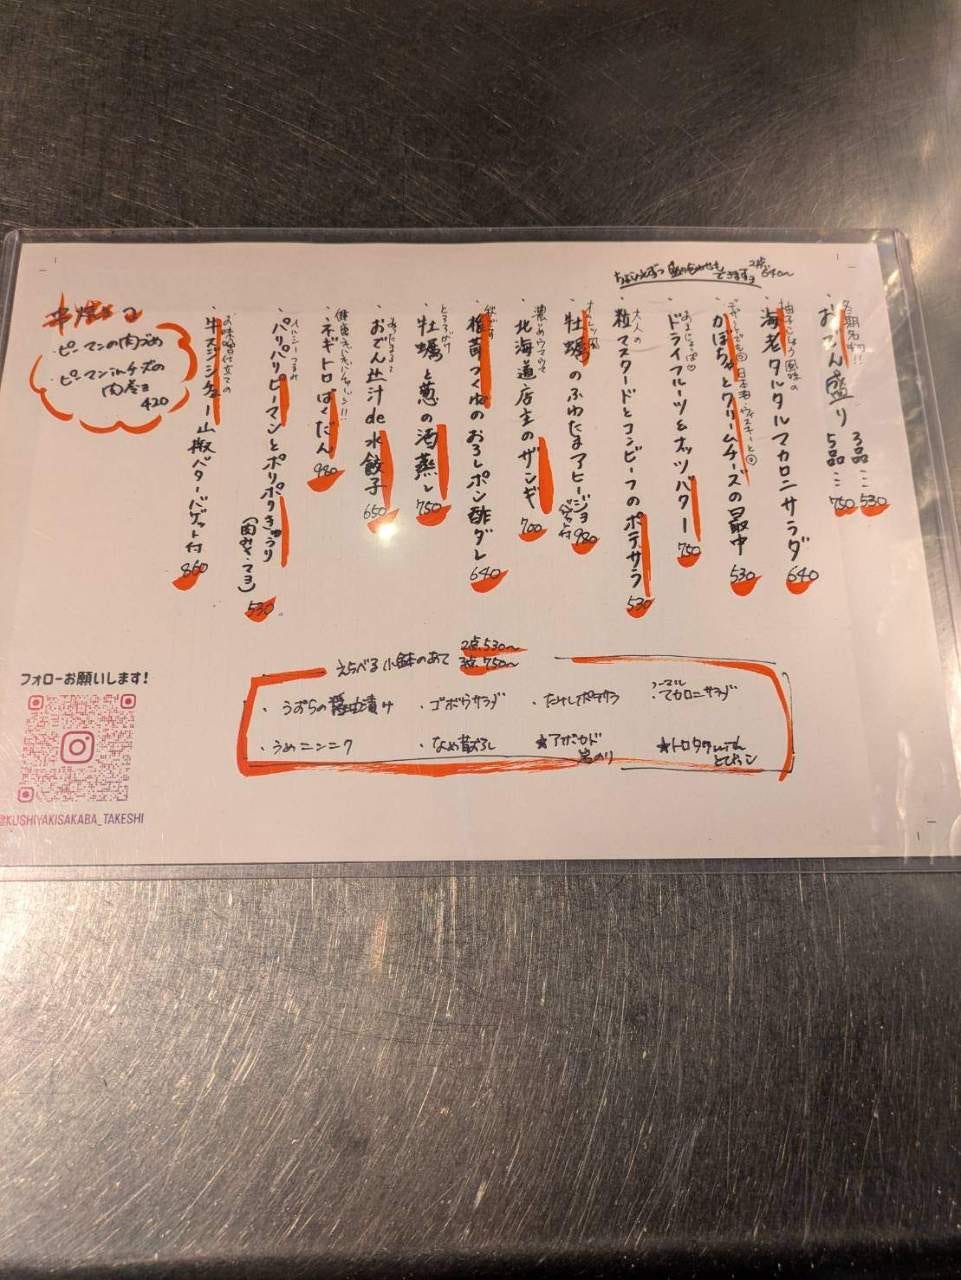 ちょびっとずつ盛り合わせも
できますョ
2点 640〜
冬期名物!!
おでん盛り
3品… 530
5品… 750
柚子こしょう風味の
海老タルタルマカロニサラダ 640
かぼちゃとクリームチーズの最中 530
ドライフルーツとナッツバター 750
大人の
粒マスタードとコンビーフのポテサラ 530
牡蠣のふわたまアヒージョ 980
バゲット付
濃いめウマウマ
北海道店主のザンギ 700
椎茸つくねのおろしポン酢ダレ 640
牡蠣と葱の酒蒸し 750
おでん出汁de水餃子 650
ネギトロばくだん 980
パリパリピーマンとポリポリきゅうり
(肉みそ・マヨ) 530
牛スジシチュー山椒バターバゲット付 860
串焼き
・ピーマンの肉づめ
・ピーマンinチーズの
肉巻き
420
えらべる小鉢のあて
2点.530〜
3点.750〜
・うずらの醤油漬け
・ゴボウサラダ
・たけしポテサラ
ノーマル
マカロニサラダ
・うめニンニク
・なめ茸おろし
★アボカド
岩のり
★トロタクwith
とびっこ
フォローお願いします!
@KUSHIYAKISAKABA_TAKESHI